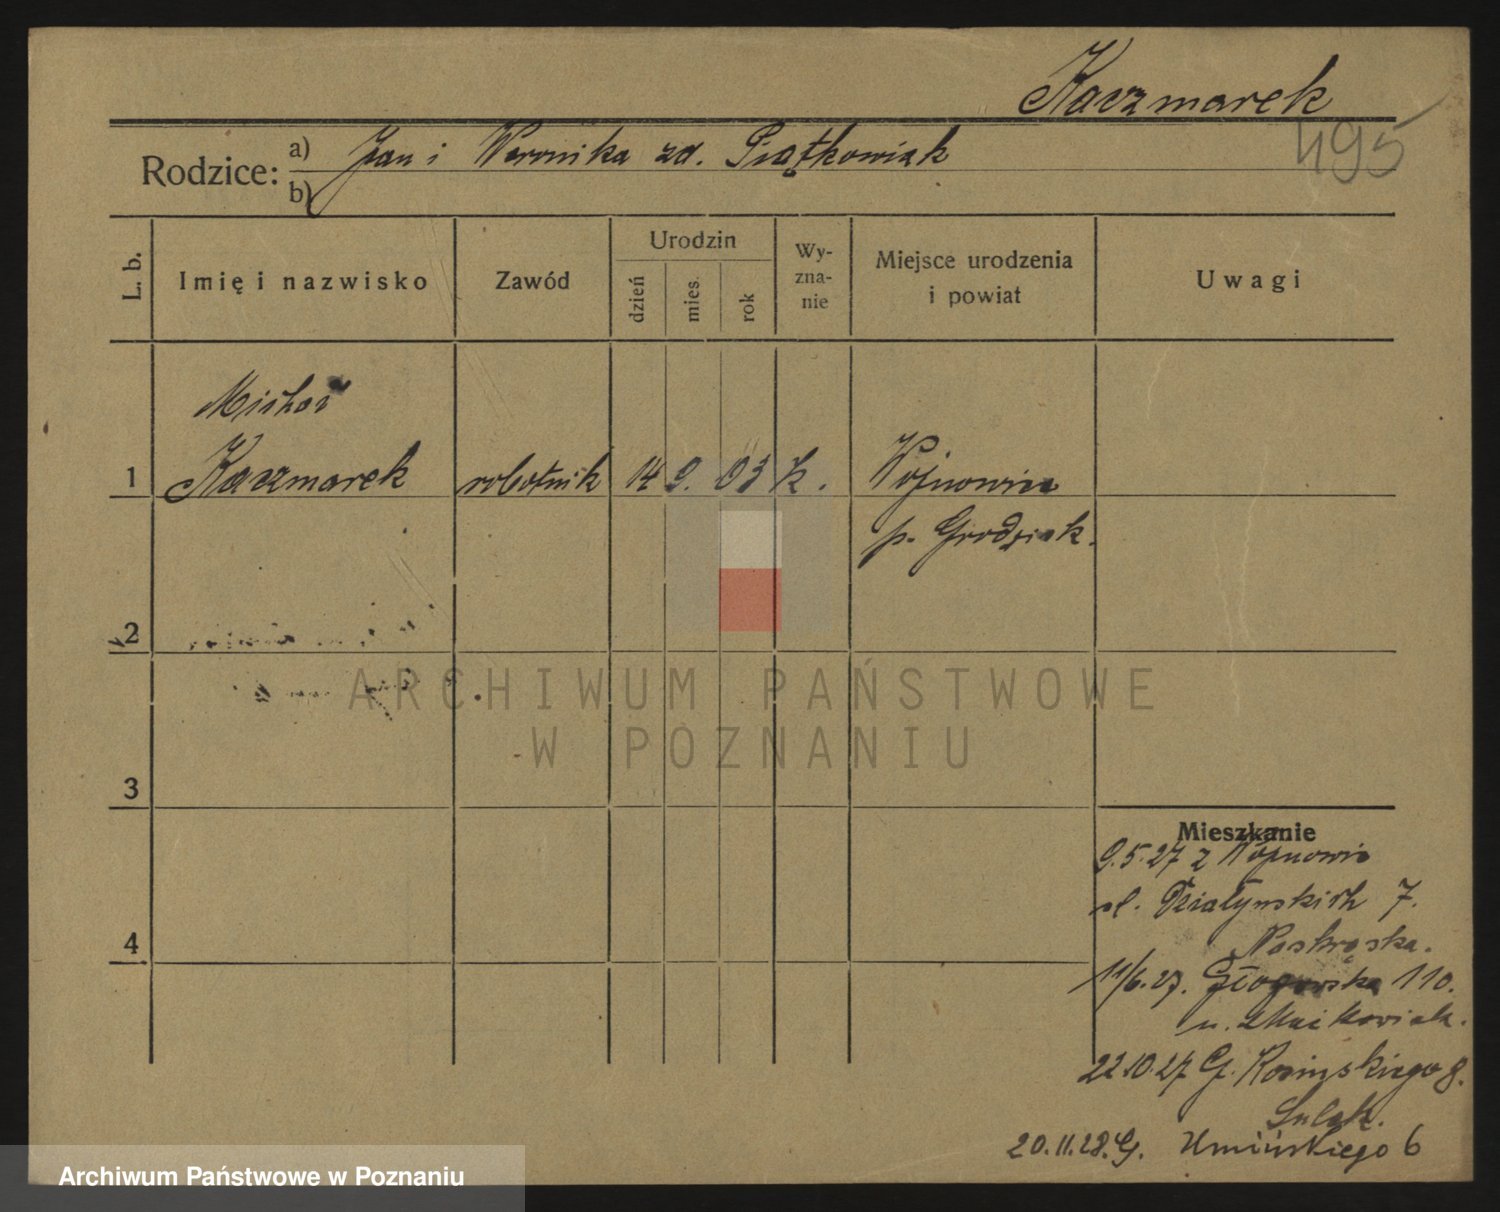 Kaczmarek
495
Rodzice: a) Jan i Weronika zd. Piątkowiak
b)
L. b.
Imię i nazwisko
Zawód
Urodzin
dzień
mies.
rok
Wy-
zna-
nie
Miejsce urodzenia
i powiat
Uwagi
Michał
1 Kaczmarek robotnik 14 9. 03 k. Wojnowice
p. Grodzisk.
2
3
4
Mieszkanie
9.5.27 z Wojnowic
ul. Działyńskich 7.
11/6.27. Głogowska 110.
u.
22.10.27 G. 8.
20.11.28. G. Umińskiego 6
ARCHIWUM PAŃSTWOWE
W POZNANIU
Archiwum Państwowe w Poznaniu